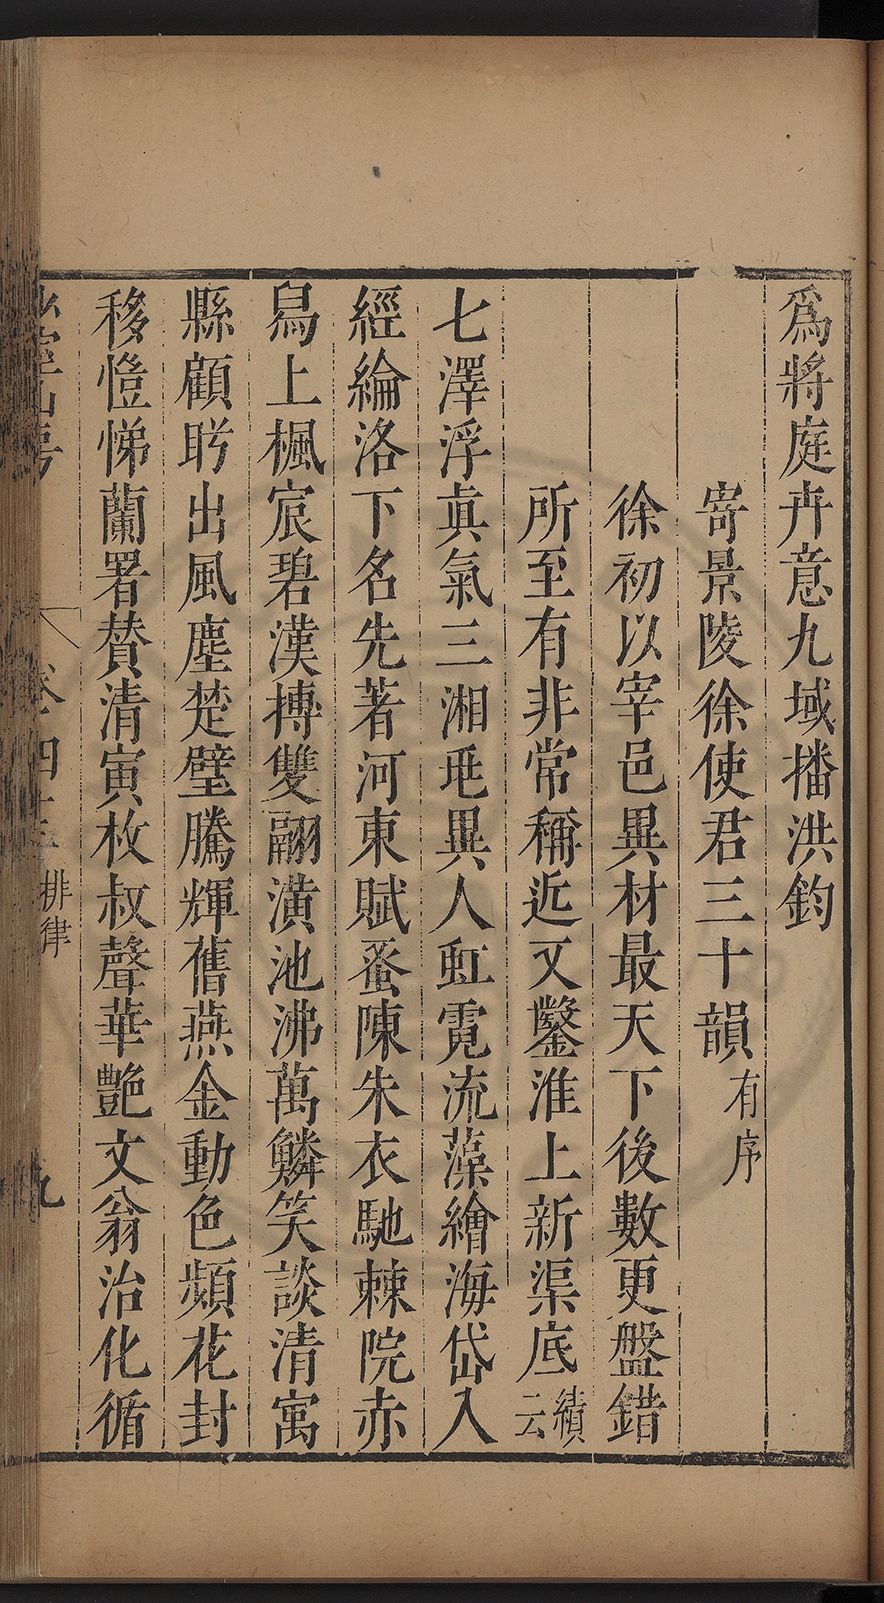 爲將庭卉意九域播洪鈞
寄景陵徐使君三十韻有序
徐初以宰邑異材最天下後數更盤錯
所至有非常稱近又鑿淮上新渠底績云
七澤浮眞氣三湘毓異人虹霓流藻繪海岱入
經綸洛下名先著河東賦蚤陳朱衣馳棘院赤
舄上楓宸碧漢摶雙翮潢池沸萬鱗笑談清寓
縣顧盻出風塵楚璧騰輝舊燕金動色頻花封
移愷悌蘭署賛清寅枚叔聲華艶文翁治化循
排律
九